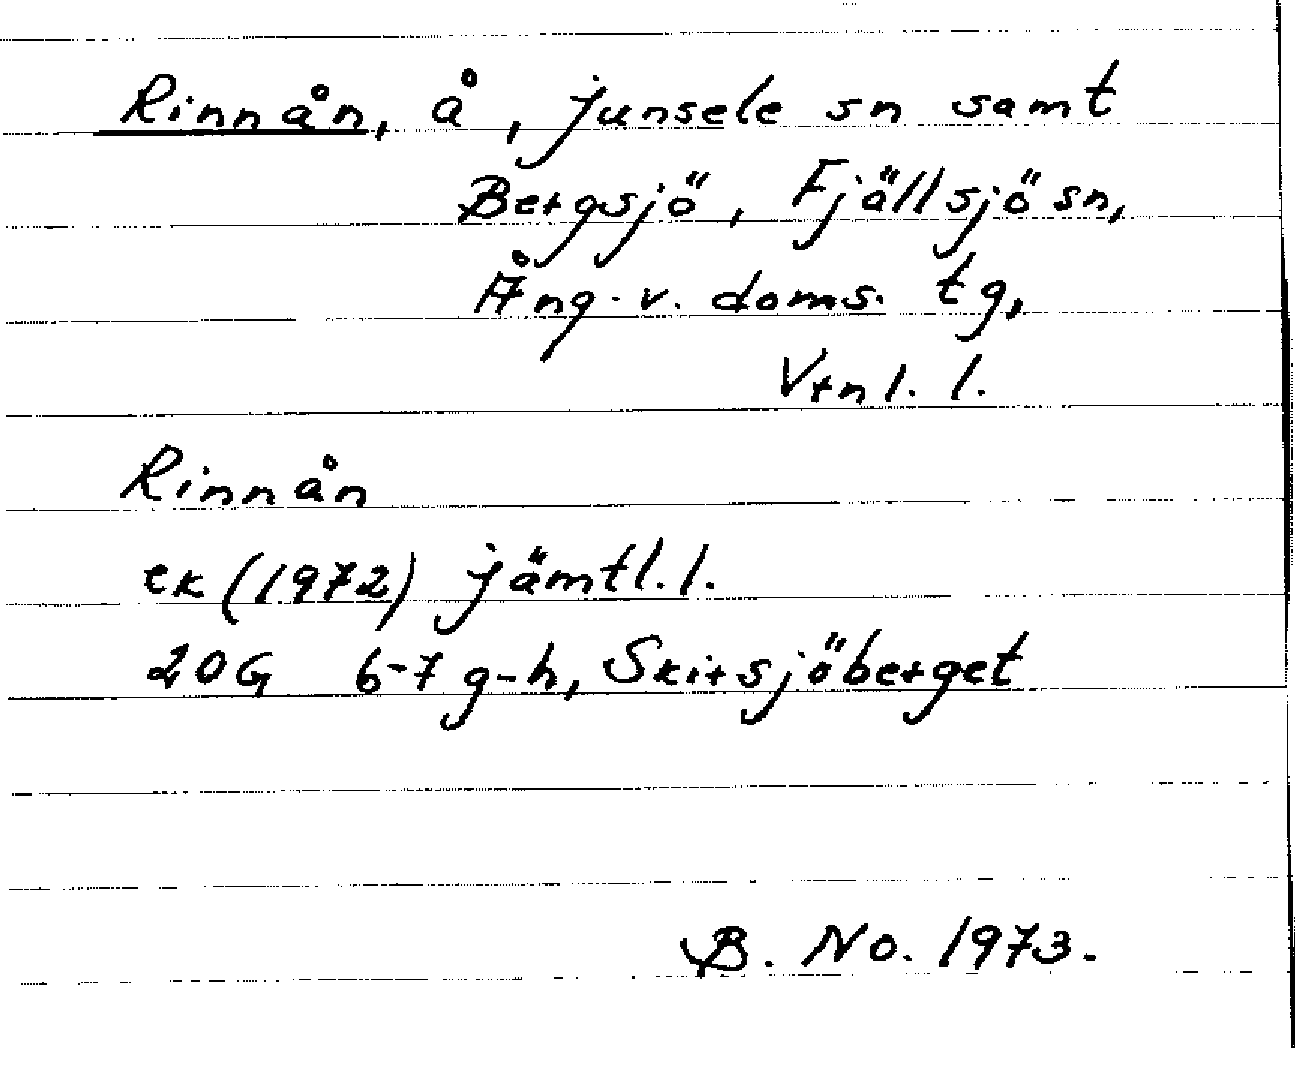 Rinnån, å, Junsele sn samt
Bergsjö, Fjällsjö sn,
Ång. v. doms. tg,
Vtnl. l.
Rinnån
ek (1972) Jämtl. l.
20G 6-7 g-h, Skirsjöberget
B. No. 1973.